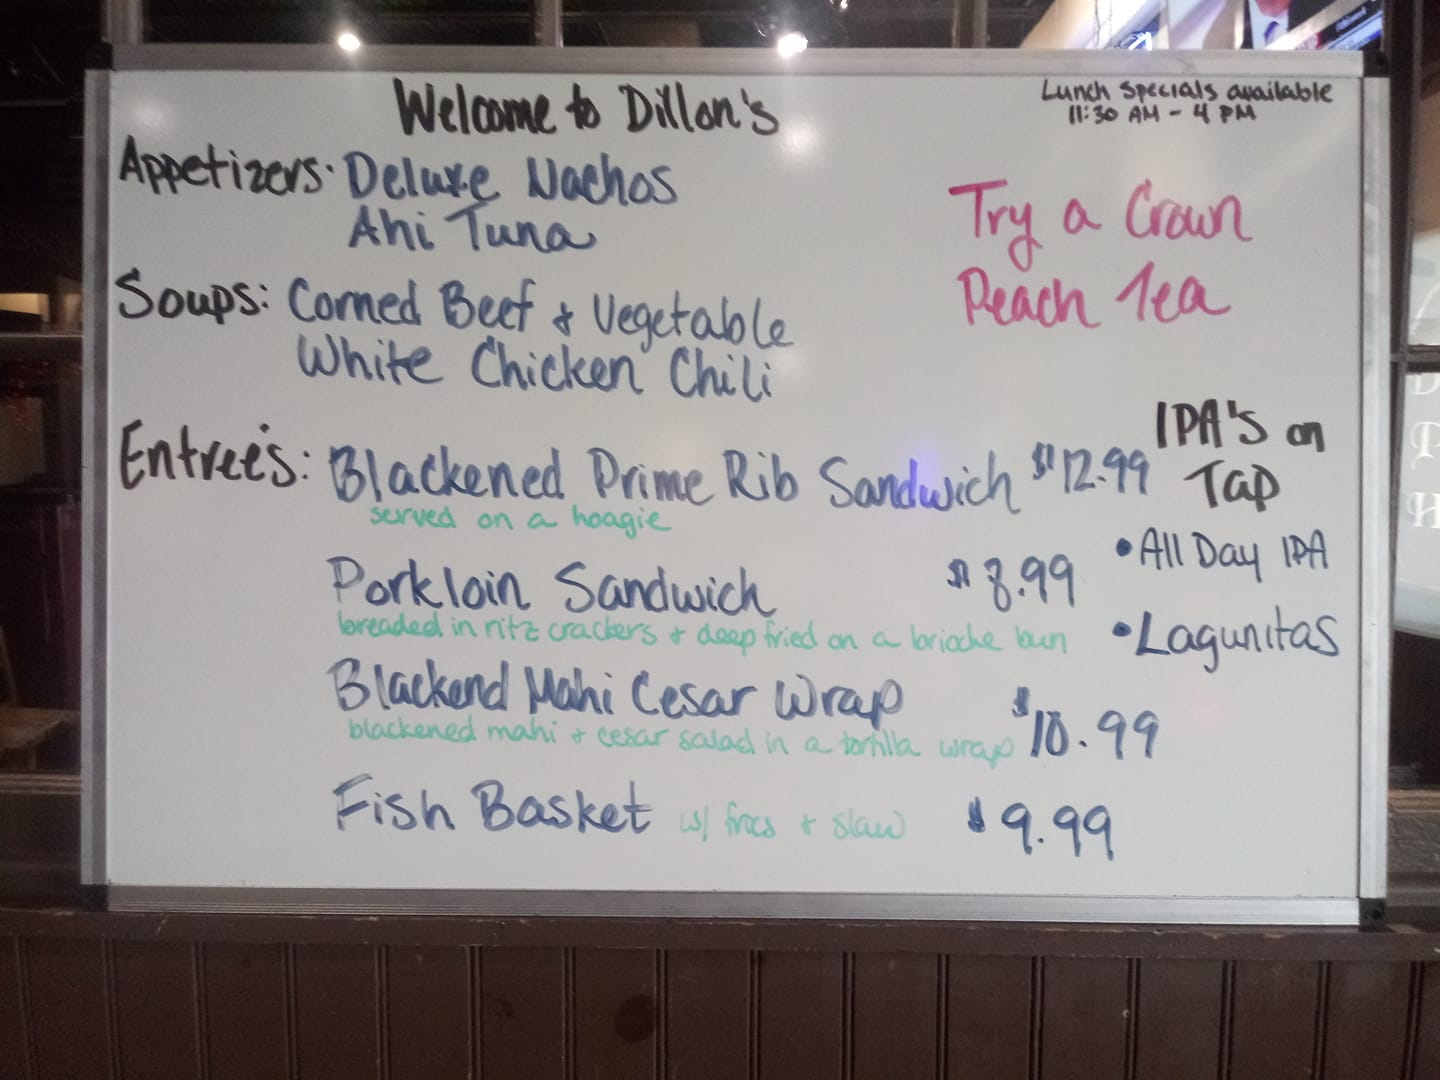 Welcome to Dillon's
Lunch Specials available
11:30 AM - 4 PM
Appetizers: Deluxe Nachos
Ahi Tuna
Try a Crown
Peach Tea
Soups: Corned Beef & Vegetable
White Chicken Chili
IPA's on
Tap
• All Day IPA
• Lagunitas
Entreé's: Blackened Prime Rib Sandwich $12.99
served on a hoagie
Porkloin Sandwich $8.99
breaded in ritz crackers & deep fried on a brioche bun
Blackend Mahi Cesar Wrap $10.99
blackened mahi & cesar salad in a tortilla wrap
Fish Basket w/ fries & slaw $9.99